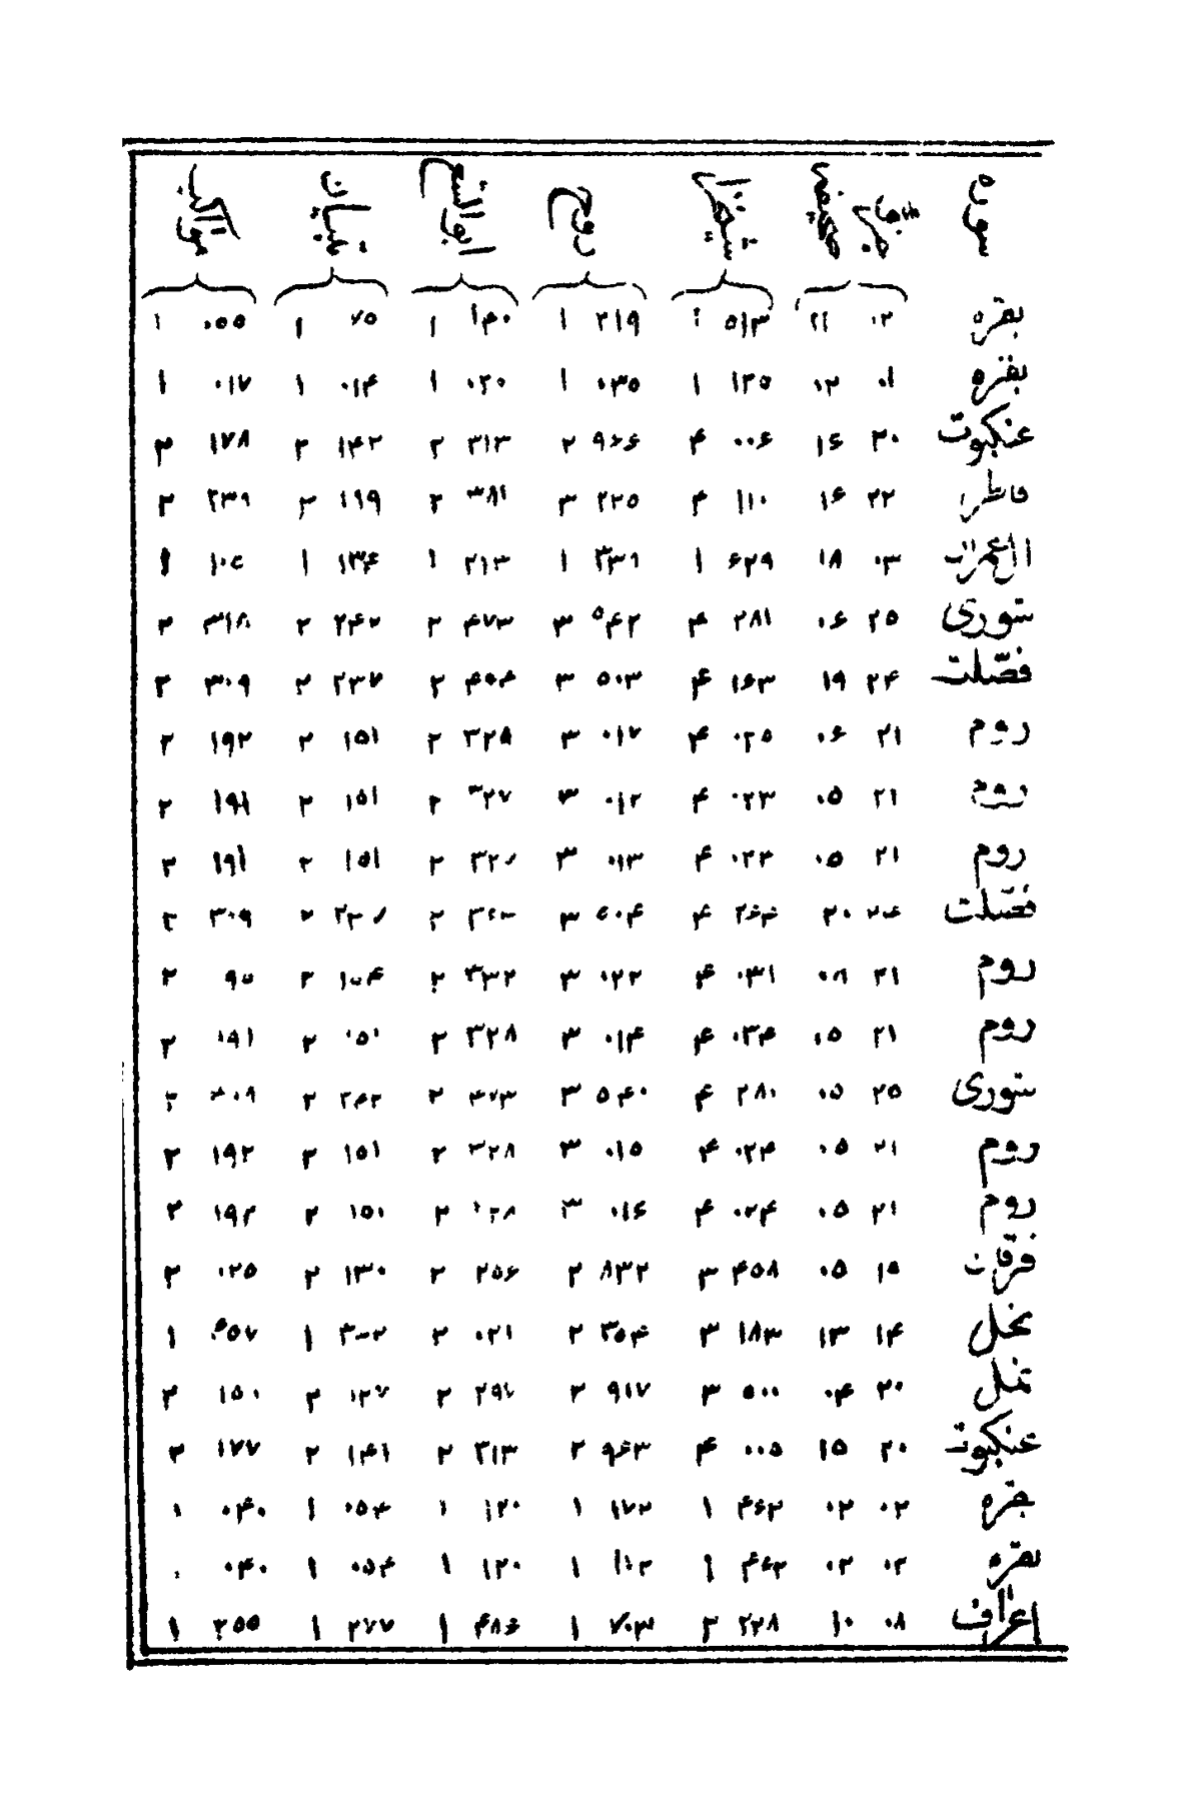 سوره جزء صحیفه روح ابوالفتح تبیان مواکب
بقره ۰۲ ۲۱ ۵۱۳ ۲۱۹ ۱ ۱۴۰ ۱ ۷۵ ۱ ۰۵۵ ۱
بقره ۰۱ ۰۲ ۱۲۵ ۱ ۰۳۵ ۱ ۰۲۰ ۱ ۰۱۴ ۱ ۰۱۷ ۱
عنکبوت ۲۰ ۱۶ ۰۰۶ ۴ ۹۶۶ ۲ ۳۱۳ ۲ ۱۴۲ ۲ ۱۷۸ ۲
فاطر ۲۲ ۱۶ ۱۱۰ ۴ ۲۲۵ ۳ ۳۸۱ ۲ ۱۹۹ ۲ ۲۳۹ ۲
ال عمران ۰۳ ۱۸ ۶۲۹ ۱ ۳۳۱ ۱ ۲۱۳ ۱ ۱۳۶ ۱ ۱
شوری ۲۵ ۰۶ ۲۸۱ ۴ ۵۴۲ ۳ ۴۷۳ ۲ ۲۴۲ ۲ ۳۱۸ ۲
فصّلت ۲۴ ۱۹ ۱۶۳ ۴ ۵۰۳ ۳ ۲ ۲۳۷ ۲ ۳۰۹ ۲
روم ۲۱ ۰۶ ۰۲۵ ۴ ۰۱۷ ۳ ۳۲۸ ۲ ۱۵۱ ۲ ۱۹۲ ۲
روم ۲۱ ۰۵ ۰۲۳ ۴ ۰۱۲ ۳ ۳۲۷ ۲ ۱۵۱ ۲ ۱۹۱ ۲
روم ۲۱ ۰۵ ۰۲۳ ۴ ۰۱۳ ۳ ۲ ۱۵۱ ۲ ۱۹۱ ۲
فصّلت ۲۴ ۲۰ ۴ ۵۰۴ ۳ ۲ ۲ ۳۰۹ ۲
روم ۲۱ ۰۸ ۰۳۱ ۴ ۰۲۲ ۳ ۳۳۲ ۲ ۱۵۴ ۲ ۲
روم ۲۱ ۰۵ ۰۲۴ ۴ ۰۱۴ ۳ ۳۲۸ ۲ ۲ ۱۹۱ ۲
شوری ۲۵ ۰۵ ۲۸۰ ۴ ۵۴۰ ۳ ۴۷۳ ۲ ۲۴۲ ۲ ۲
روم ۲۱ ۰۵ ۰۲۴ ۴ ۰۱۵ ۳ ۳۲۸ ۲ ۱۵۱ ۲ ۱۹۲ ۲
روم ۲۱ ۰۵ ۰۲۴ ۴ ۰۱۶ ۳ ۲ ۲ ۱۹۲ ۲
فرقان ۱۹ ۰۵ ۴۵۸ ۳ ۸۳۲ ۲ ۲۵۶ ۲ ۱۳۰ ۲ ۰۲۵ ۲
نحل ۱۴ ۱۳ ۱۸۳ ۳ ۳۵۴ ۲ ۰۲۱ ۲ ۱ ۴۵۷ ۱
نمل ۲۰ ۰۴ ۵۰۰ ۳ ۹۱۷ ۲ ۲۹۷ ۲ ۱۲۷ ۲ ۱۵۰ ۲
عنکبوت ۲۰ ۱۵ ۰۰۵ ۴ ۹۶۳ ۲ ۳۱۳ ۲ ۱۴۱ ۲ ۱۷۷ ۲
بقره ۰۲ ۰۲ ۴۶۲ ۱ ۱۷۲ ۱ ۱۲۰ ۱ ۰۵۴ ۱ ۰۴۰ ۱
بقره ۰۲ ۰۲ ۴۶۲ ۱ ۱ ۱۲۰ ۱ ۰۵۴ ۱ ۰۴۰
اعراف ۰۸ ۱۰ ۲۲۸ ۲ ۷۰۳ ۱ ۴۸۶ ۱ ۲۷۷ ۱ ۲۵۵ ۱